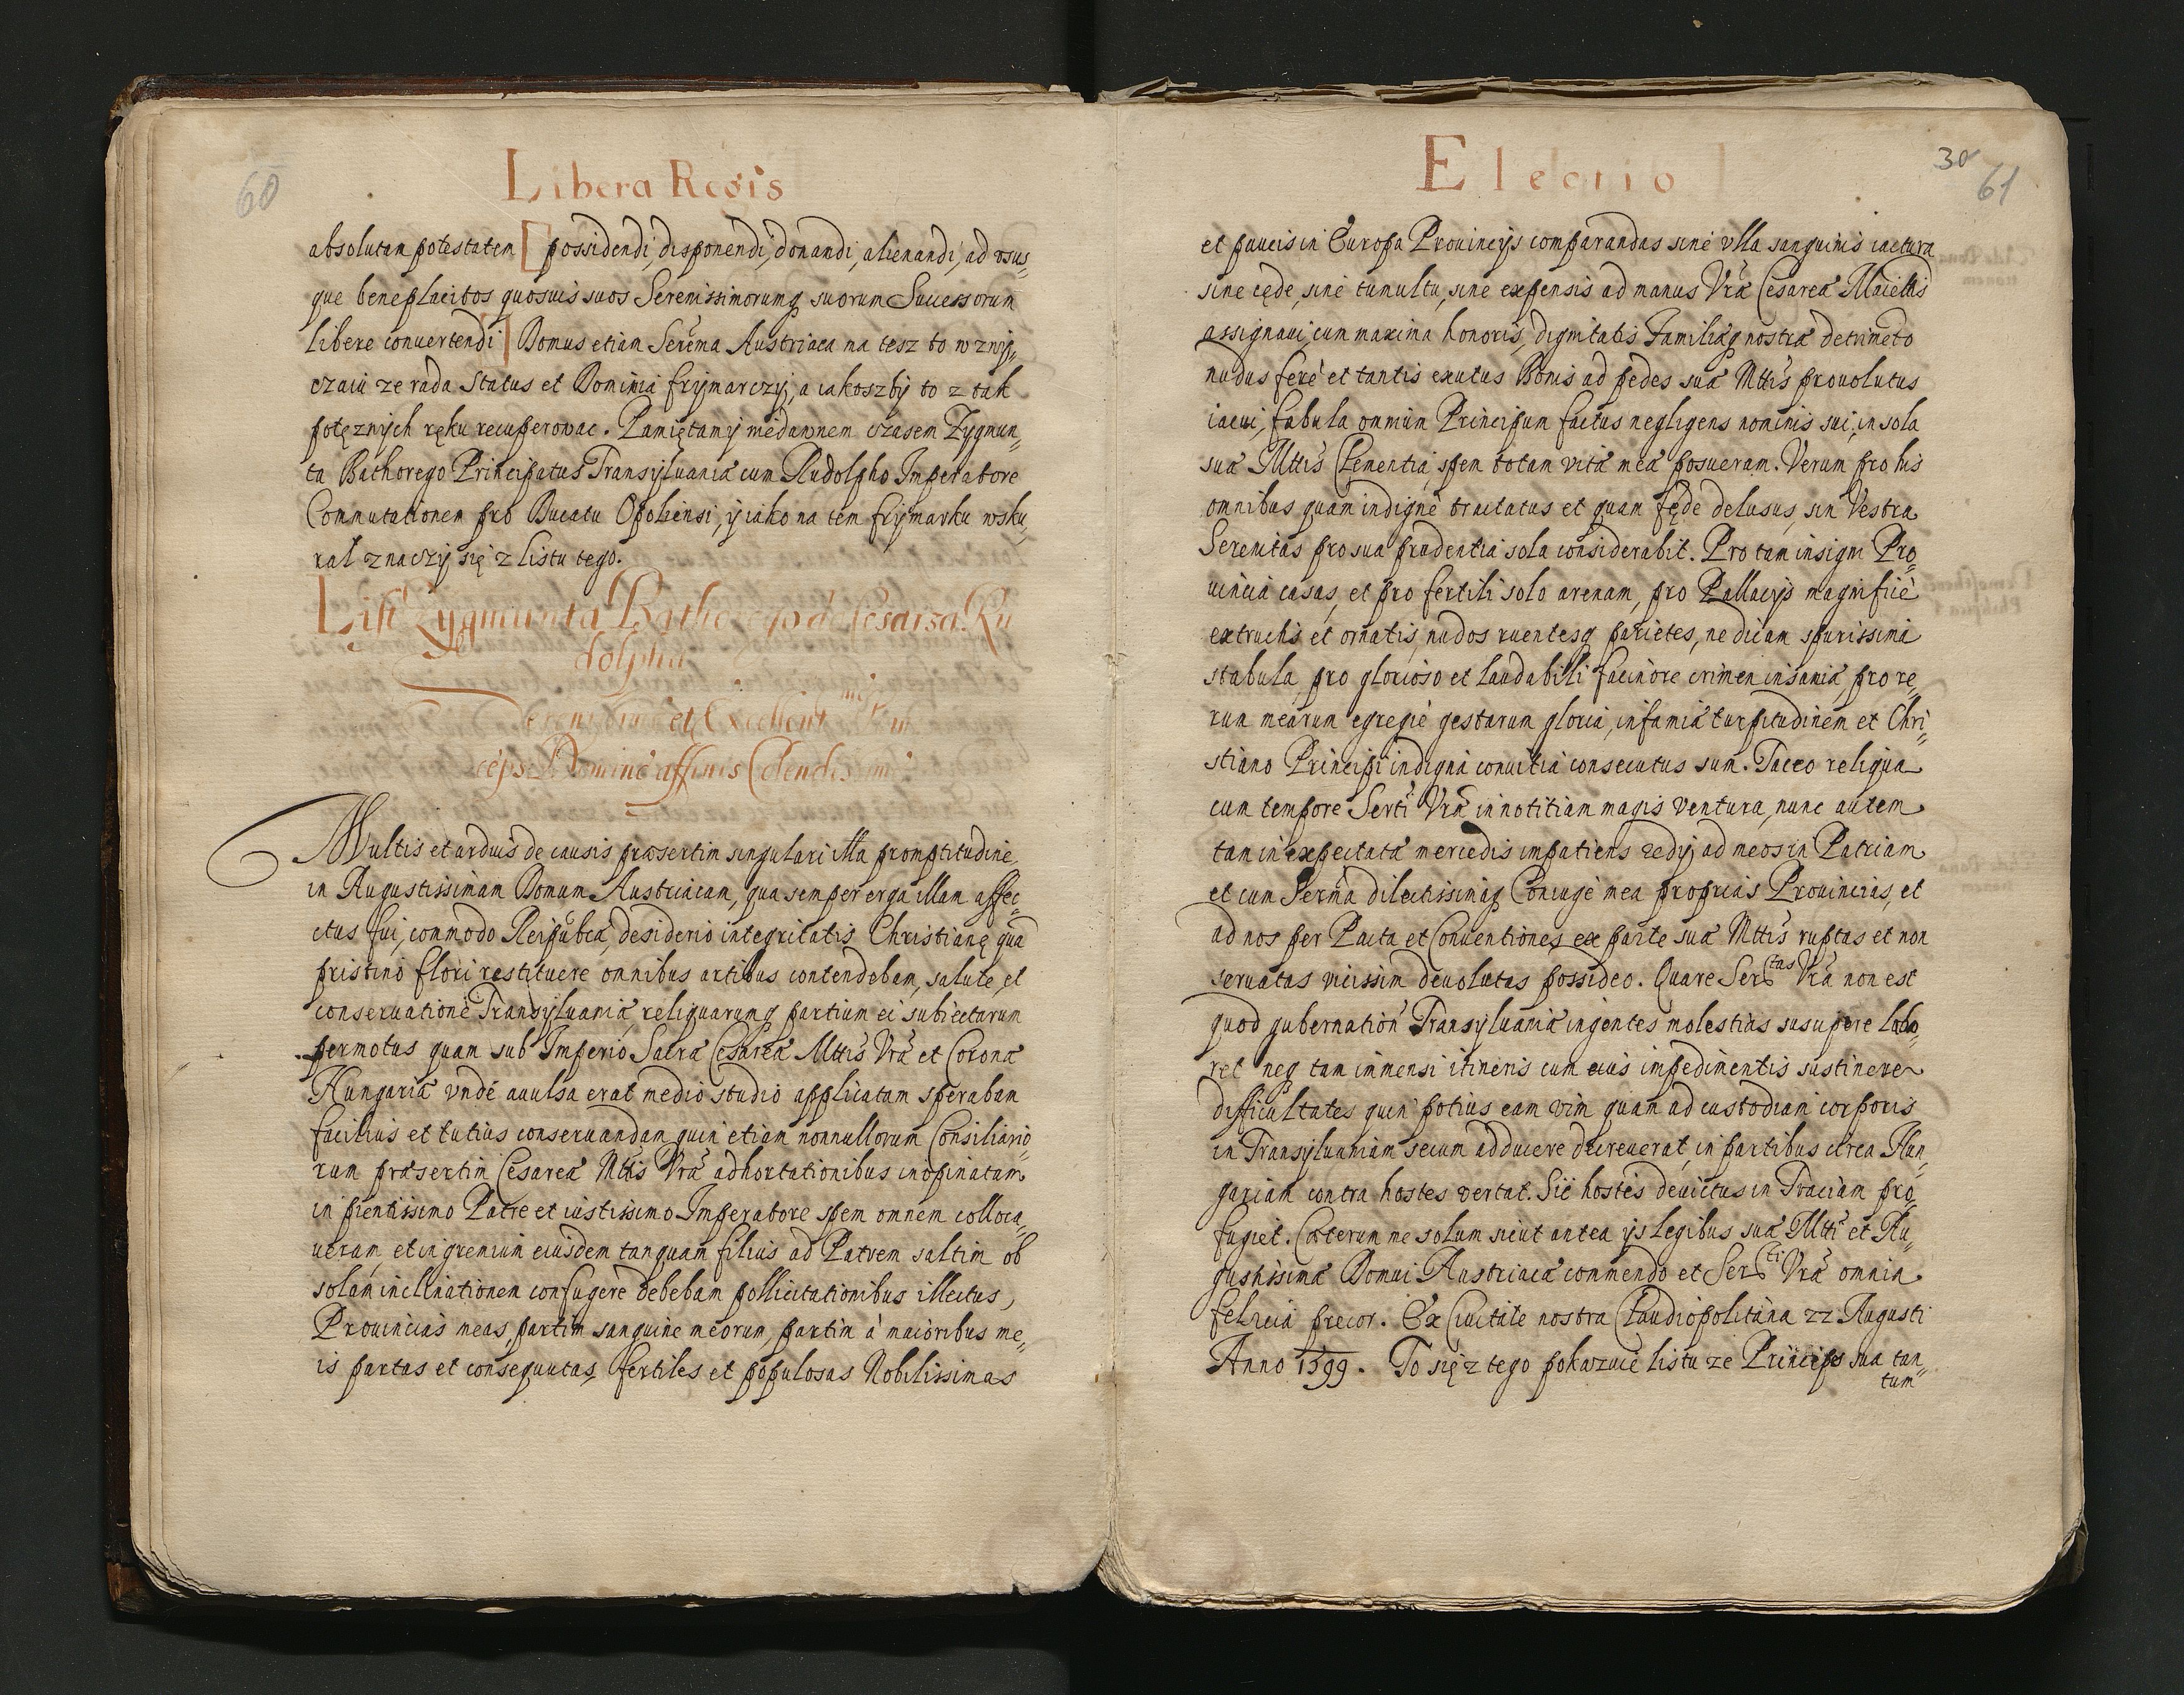 60
Libera Regis
absolutam potestatem [possidendi, disponendi, donandi, alienandi, ad vsus=
que beneplacitos quosuis suos Serenissimorumq suorum Successorum
libere conuertendi] Domus etiam Serema Austriaca ma tesz to w zwy=
czaiu ze rada Status et Dominia frymarczy, a iakoszby to z tak
potęznych ręku recuperowac. Pamiętamy niedawnem czasem Zygmun=
ta Bathorego Principatus Transyluaniæ cum Rudolpho Imperatore
Commutationem pro Ducatu Opoliensi, y iako na tem frymarku wsku=
rał znaczy się z listu tego.
List Zygmunta Bathorego do Cesarza Ru
dolpha
Serenissime et Excellent Prin
ceps Domine affinis Colendissime
Multis et arduis de causis præsertim singulari illa promptitudine
in Augustissimam Domum Austriacam, qua semper erga illam affec=
ctus fui, commodo Reipubcæ, desiderio integritatis Christianę quã
pristino flori restituere omnibus artibus contendebam, salute, et
conseruatione Transyluaniæ, reliquarumq partium ei subiectarum
permotus quam sub Imperio Sacræ Cesareæ Mttis Vræ et Coronæ
Hungariæ vnde auulsa erat medio studio applicatam speraham
facilius et tutius conseruandam quin etiam nonnullorum Consiliario=
rum præsertim Cesareæ Mttis Vræ adhortationibus inopinatam
in pientissimo Patre et iustissimo Imperatore spem omnem colloca=
ueram, et in gremium eiusdem tanquam filius ad Patrem saltim ob
solam inclinationem confugere debebam pollicitationibus illectus,
Prouincias meas partim sanguine meorum, partim à maioribus me=
is partas et consequutas, fertiles et populosas Nobilissimas
30
61
Electio
et paucis in Europa Prouincijs comparandas sine vlla sanguinis iactura
sine cęde, sine tumultu, sine expensis ad manus Vræ Cesareæ Maiettis
assignaui, cum maxima honoris, dignitatis Familiæq nostræ detrimeto
nudus fere et tantis exutus Bonis ad pedes suæ Mttis prouolutus
iacui, fabula omnium Principum factus negligens nominis sui, in sola
suæ Mttis Clementia, spem totam vitæ meæ posueram. Verum pro his
omnibus quam indignè tractatus et quam fęde delusus, sin Vestra
Serenitas pro sua prudentia sola considerabit. Pro tam insigni Pro=
uincia casas, et pro fertili solo arenam, pro Pallacijs magnificè
extructis et ornatis, nudos ruentesq parietes, ne dicam spurissima
stabula, pro glorioso et laudabilli facinore crimen insaniæ, pro re=
rum mearum egregiè gestarum gloria, infamiæ turpitudinem et Chri=
stiano Principi indigna conuitia consecutus sum. Taceo reliqua
cum tempore Serti Vræ in notitiam magis ventura, nunc autem
tam inexpectatæ mercedis impatiens redij ad meos in Patriam
et cum Serma dilectissimaq Coniuge mea proprias Prouincias, et
ad nos per Pacta et Conuentiones ex parte suæ Mttis ruptas et non
seruatas vicissim deuolutas possideo. Quare Sertas Vra non est
quod gubernation Transyluaniæ ingentes molestias susupere labo=
ret neq tam immensi itineris cum eius impedimentis sustinere
difficultates quin potius eam vim quam ad custodiam corporis
in Transyluaniam secum adducere decreuerat, in partibus circa Hun=
gariam contra hostes vertat. Sic hostis deuictus in Traciam pro=
fugiet. Cæterum me solum sicut antea ijs legibus suæ Mtti et Au=
gustissimæ Domui Austriacæ commendo et Serti Vræ omnia
felicia precor. Ex Ciuitate nostra Claudiopolitana 22 Augusti
Anno 1599. To się z tego pokazuie listu ze Princeps sua tan=
tum